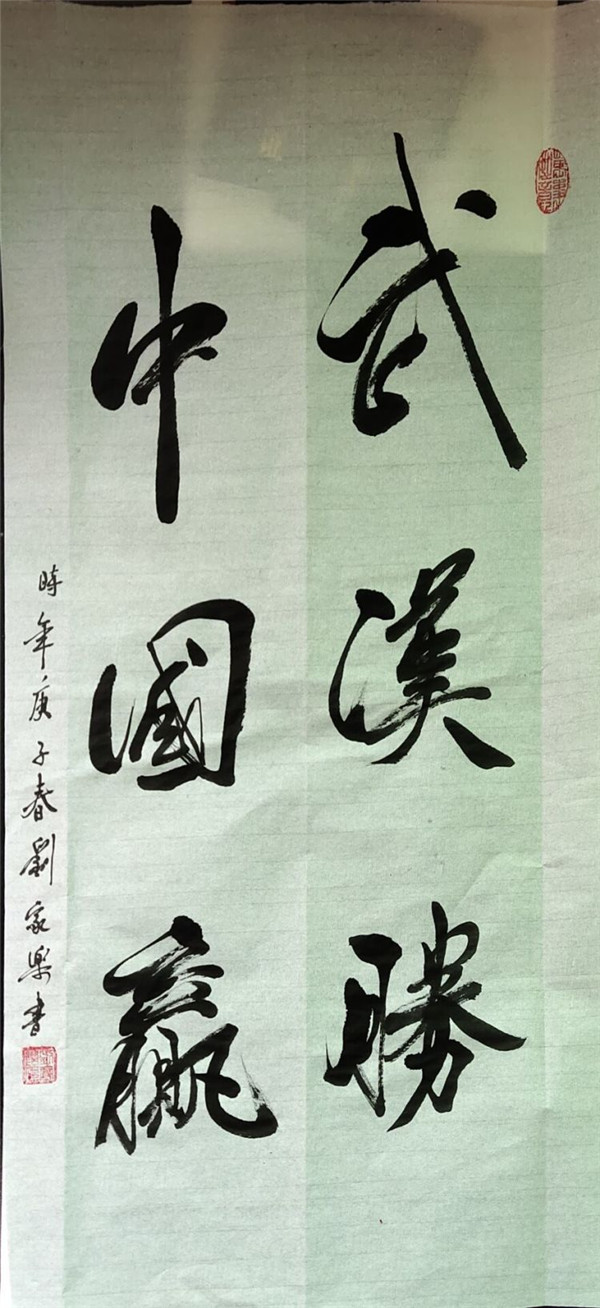 武漢勝
中國贏
時年庚子春劉家樂書